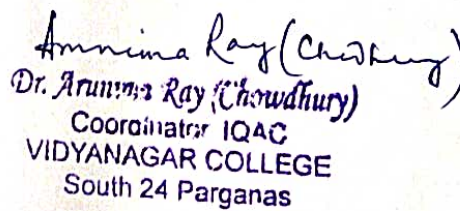 Arunima Ray (Chowdhury)
Dr. Arunima Ray (Chowdhury)
Coordinator IQAC
VIDYANAGAR COLLEGE
South 24 Parganas